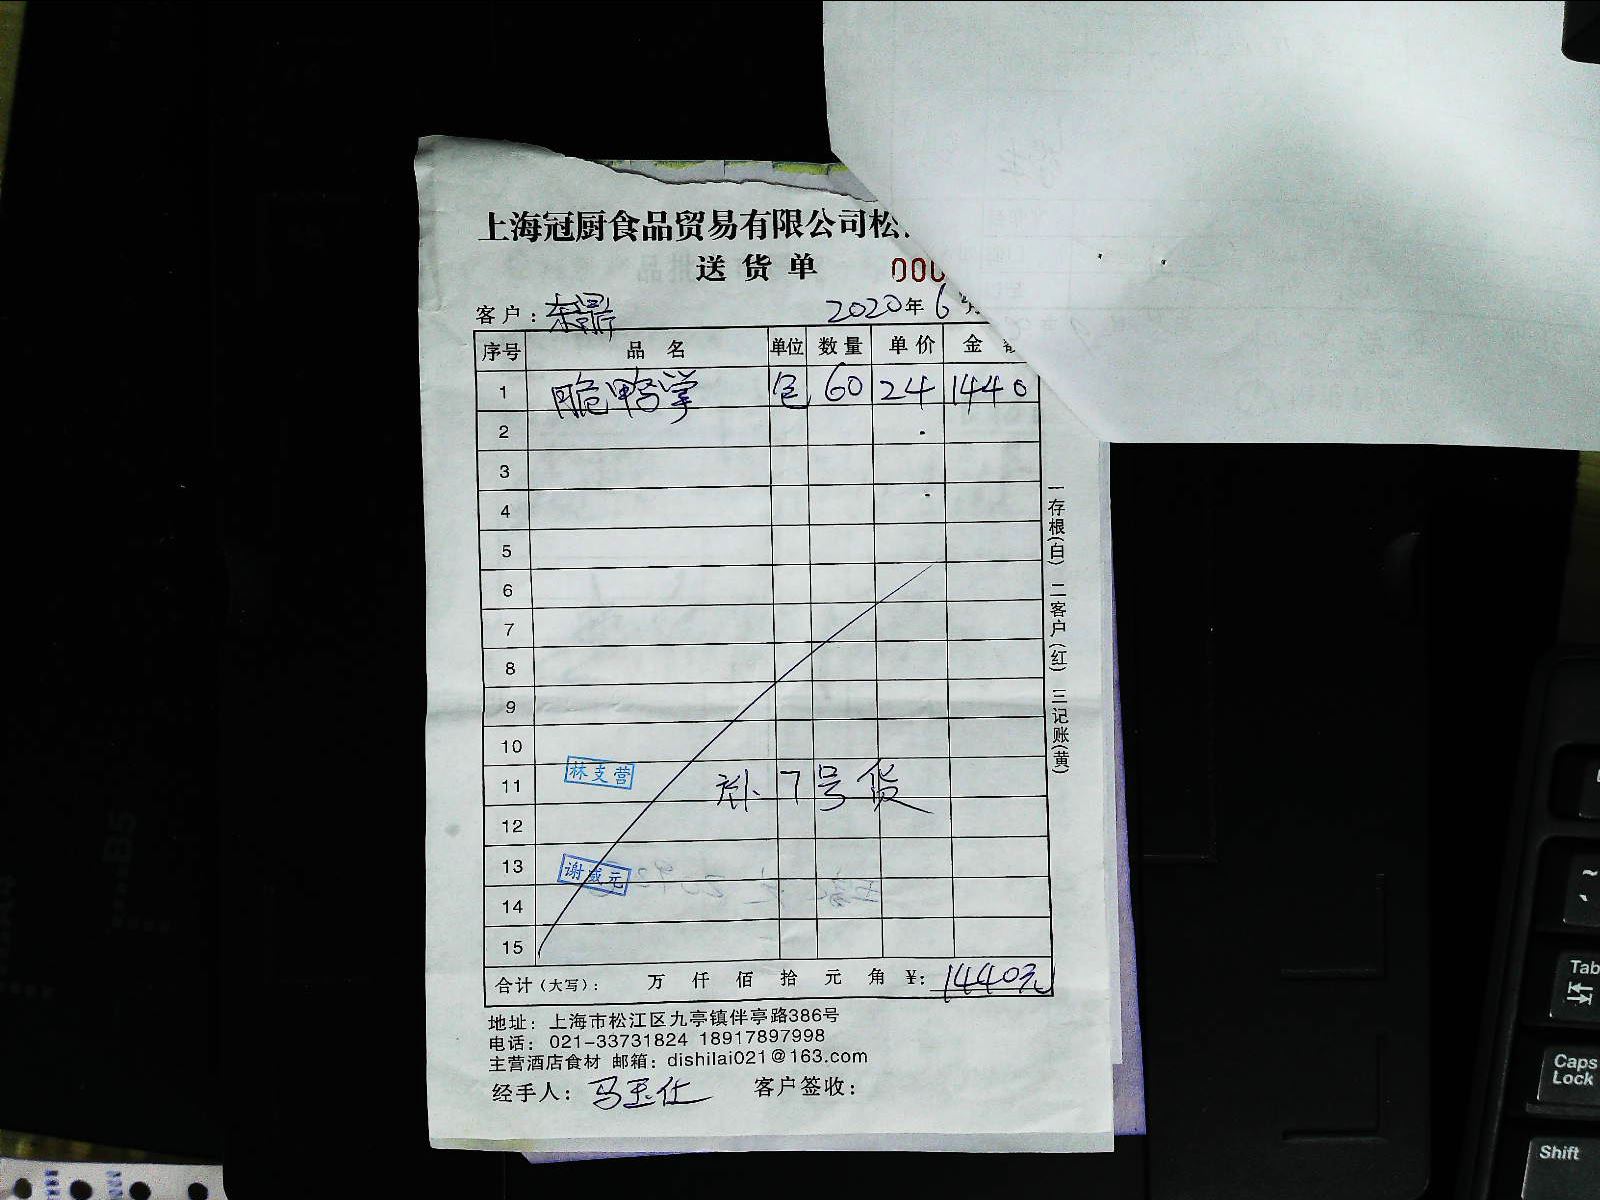 上海冠厨食品贸易有限公司松
送货单 000
客户：东鼎 2020年6月
序号 品名 单位 数量 单价 金额
1 脆鸭掌 包 60 24 1440
2
3
4
5
6
7
8
9
10
林支营
11 补7号货
12
13
谢盛元
14
15
合计（大写）： 万 仟 佰 拾 元 角 ¥：1440元
地址：上海市松江区九亭镇伴亭路386号
电话：021-33731824 18917897998
主营酒店食材 邮箱：dishilai021@163.com
经手人：马玉仕 客户签收：
一存根(白) 二客户(红) 三记账(黄)
B5
~
Tab
Caps Lock
Shift